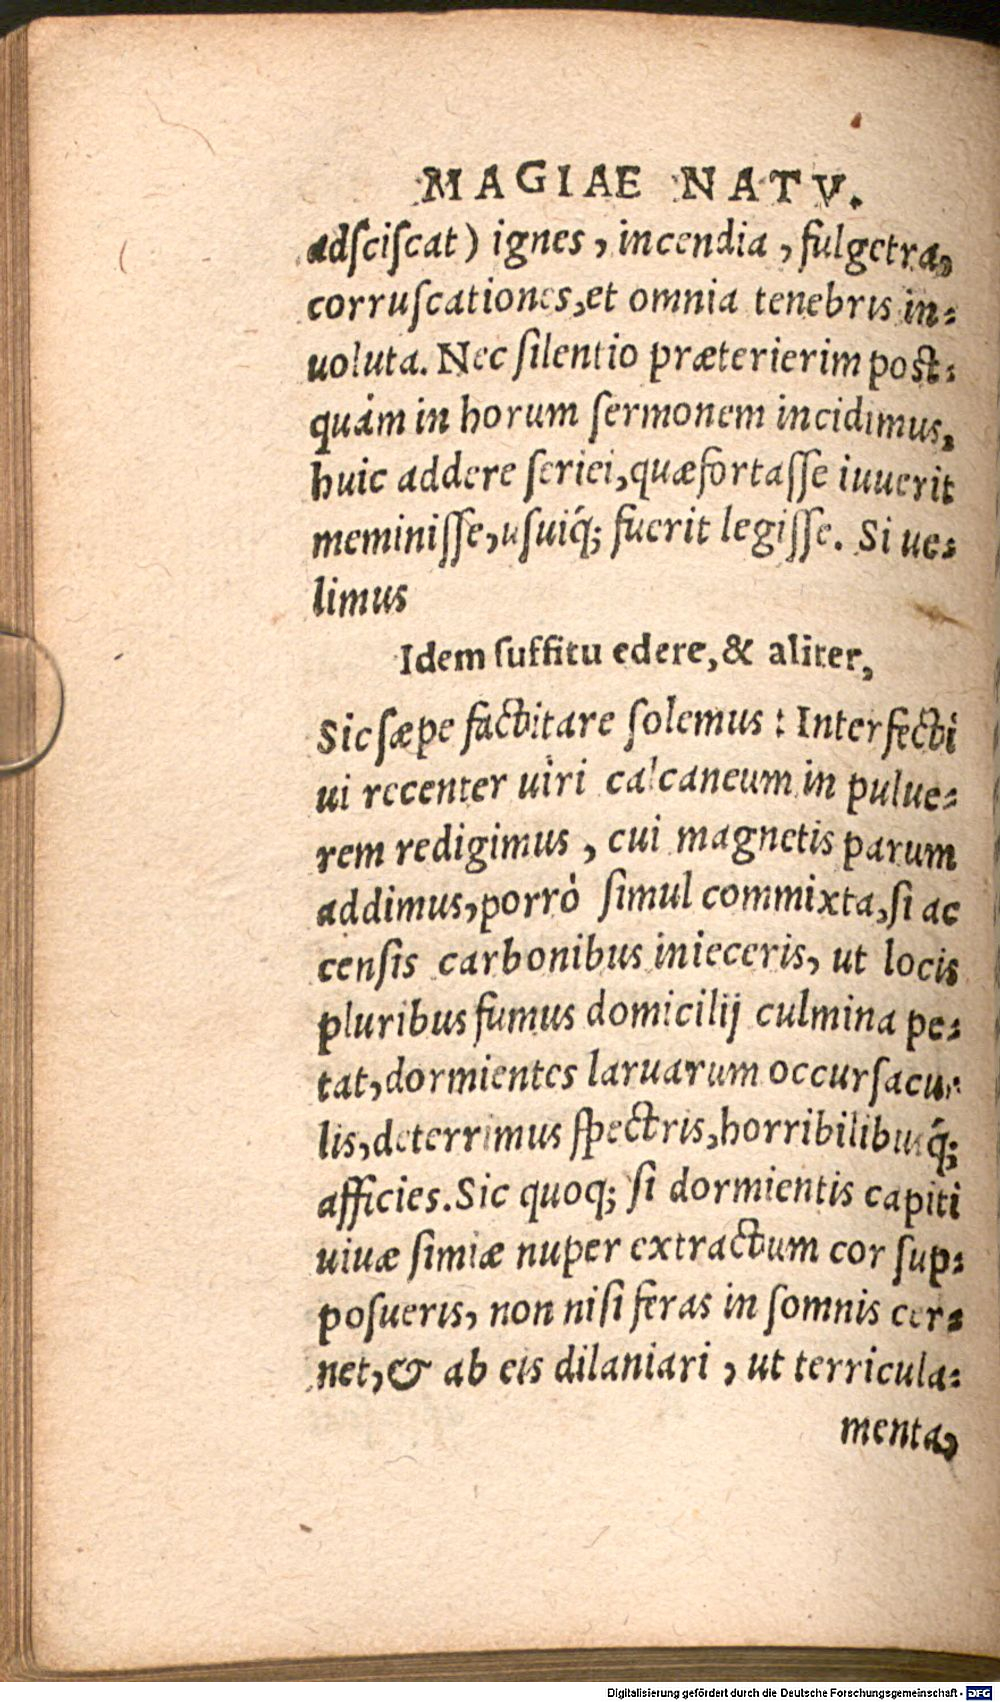 MAGIAE NATV.
adſciſcat) ignes, incendia, fulgetra,
corruſcationes, et omnia tenebris in-
uoluta. Nec ſilentio præterierim poſt-
quám in horum ſermonem incidimus,
huic addere ſeriei, quæ fortaſſe iuuerit
meminiſſe, uſuiq́; fuerit legiſſe. Si ue-
limus
Idem ſuffitu edere, & aliter,
Sic ſæpe factitare ſolemus: Interfecti
ui recenter uiri calcaneum in pulue-
rem redigimus, cui magnetis parum
addimus, porrò ſimul commixta, ſi ac
cenſis carbonibus inieceris, ut locis
pluribus fumus domicilij culmina pe-
tat, dormientes laruarum occurſacu-
lis, deterrimus ſpectris, horribilibusq́;
afficies. Sic quoq; ſi dormientis capiti
uiuæ ſimiæ nuper extractum cor ſup-
poſueris, non niſi feras in ſomnis cer-
net, & ab eis dilaniari, ut terricula-
menta,
Digitalisierung gefördert durch die Deutsche Forschungsgemeinschaft - DFG